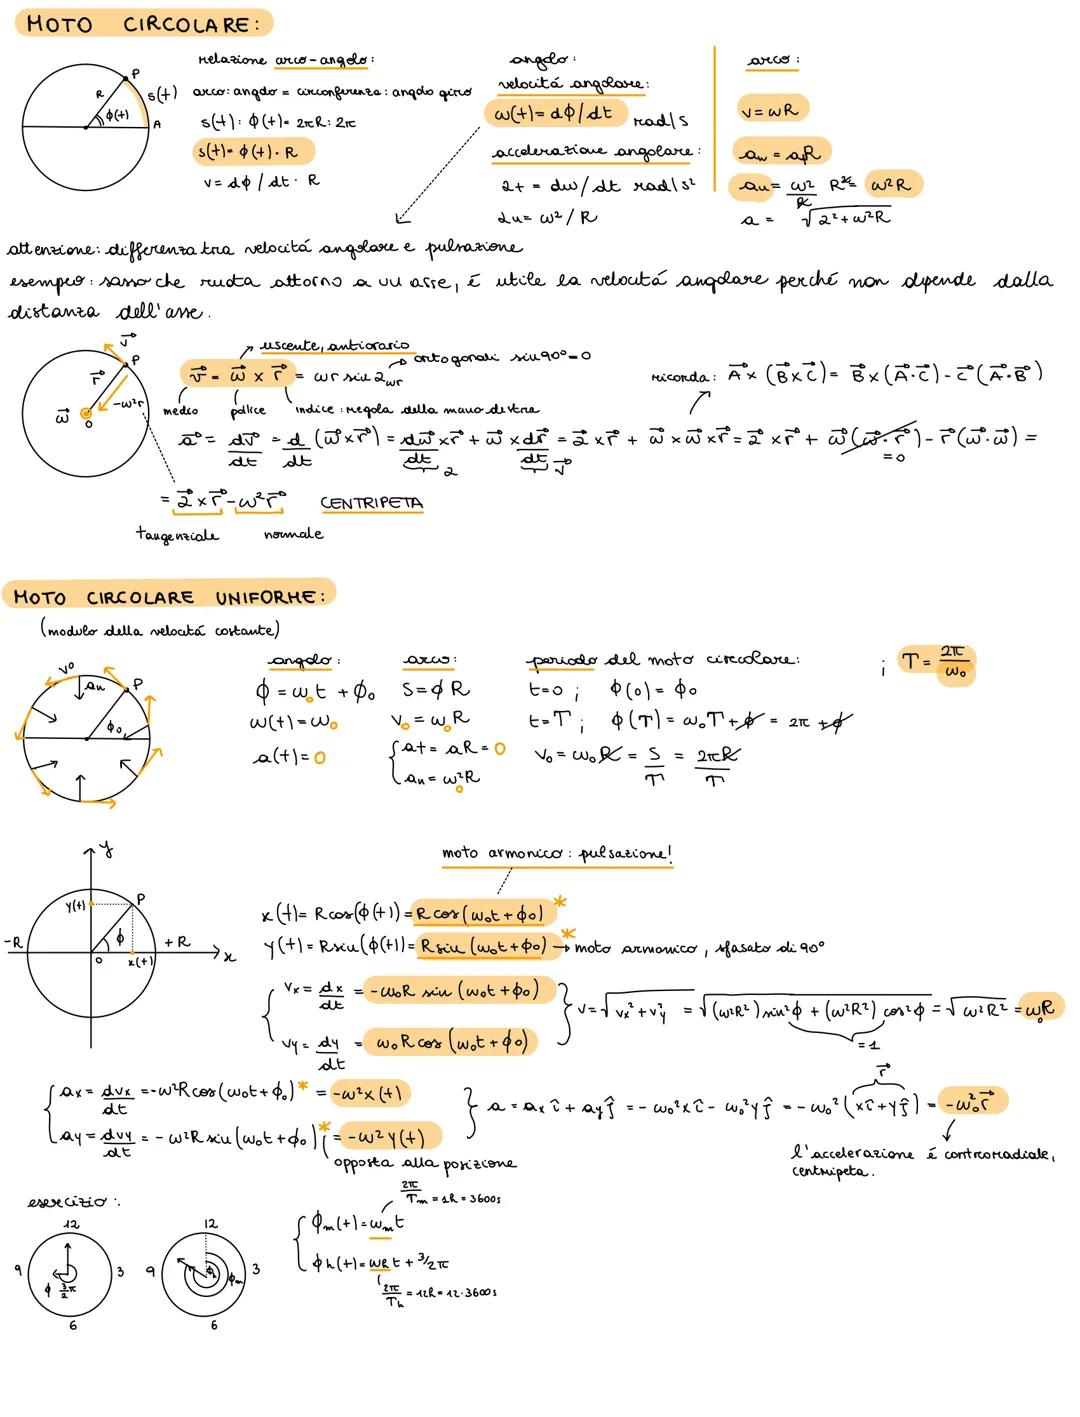 MOTO CIRCOLARE:
relazione arco-angolo:
arco: angolo = circonferenza: angolo giro
s(t): φ(t) = 2πR: 2π
s(t) = φ(t) · R
v = dφ / dt · R
R
φ(t)
P
s(t)
A
angolo:
velocitá angolare:
ω(t) = dφ/dt rad/s
accelerazione angolare:
2t = dω/dt rad/s²
2n = ω²/R
arco:
v = ωR
an = atR
an = ω²/R R² = ω²R
a = √2² + ω²R
attenzione: differenza tra velocitá angolare e pulsazione
esempio: sasso che ruota attorno a un asse, é utile la velocitá angolare perché non dipende dalla
distanza dell'asse.
v⃗
P
r⃗
-ω²r
ω⃗
O
uscente, antiorario
v⃗ = ω⃗ x r⃗ = ωr sin 2ωr
ortogonali sin90°=0
medio pollice indice: regola della mano destra
ricorda: A⃗ x (B⃗ x C⃗) = B⃗ x (A⃗·C⃗) - C⃗ (A⃗·B⃗)
a⃗ = dv⃗/dt = d/dt (ω⃗ x r⃗) = dω⃗/dt x r⃗ + ω⃗ x dr⃗/dt = 2⃗ x r⃗ + ω⃗ x ω⃗ x r⃗ = 2⃗ x r⃗ + ω⃗(ω⃗·r⃗) - r⃗(ω⃗·ω⃗) =
2 v⃗ =0
= 2⃗ x r⃗ - ω²r⃗ CENTRIPETA
tangenziale normale
MOTO CIRCOLARE UNIFORME:
(modulo della velocitá costante)
v⃗
an
P
φ₀
angolo:
φ = ω₀t + φ₀
ω(t) = ω₀
a(t) = 0
arco:
S = φR
v₀ = ω₀R
at = aR = 0
an = ω₀²R
periodo del moto circolare:
t=0; φ(0) = φ₀
t=T; φ(T) = ω₀T + φ = 2π + φ
v₀ = ω₀R = S/T = 2πR/T
; T = 2π/ω₀
y
y(t)
P
-R
φ
+R
O
x(t)
x
moto armonico: pulsazione!
x(t) = Rcos(φ(t)) = R cos(ω₀t + φ₀) *
y(t) = Rsin(φ(t)) = R sin(ω₀t + φ₀) * → moto armonico, sfasato di 90°
vx = dx/dt = -ω₀R sin(ω₀t + φ₀)
vy = dy/dt = ω₀R cos(ω₀t + φ₀)
v = √vx² + vy² = √(ω²R²) sin²φ + (ω²R²) cos²φ = √ω²R² = ω₀R
=1
ax = dvx/dt = -ω²R cos(ω₀t + φ₀) * = -ω²x(t)
ay = dvy/dt = -ω²R sin(ω₀t + φ₀) * = -ω²y(t)
opposta alla posizione
a = ax î + ay ĵ = -ω₀²x î - ω₀²y ĵ = -ω₀²(x î + y ĵ) = -ω₀²r⃗
r⃗
l'accelerazione é controradiale,
centripeta.
esercizio:
12
9
3
φ 3/2π
6
12
9
φh
φm
3
6
2π/Tm = 1h = 3600s
φm(t) = ωmt
φh(t) = ωht + 3/2π
2π/Th = 12h = 12·3600s